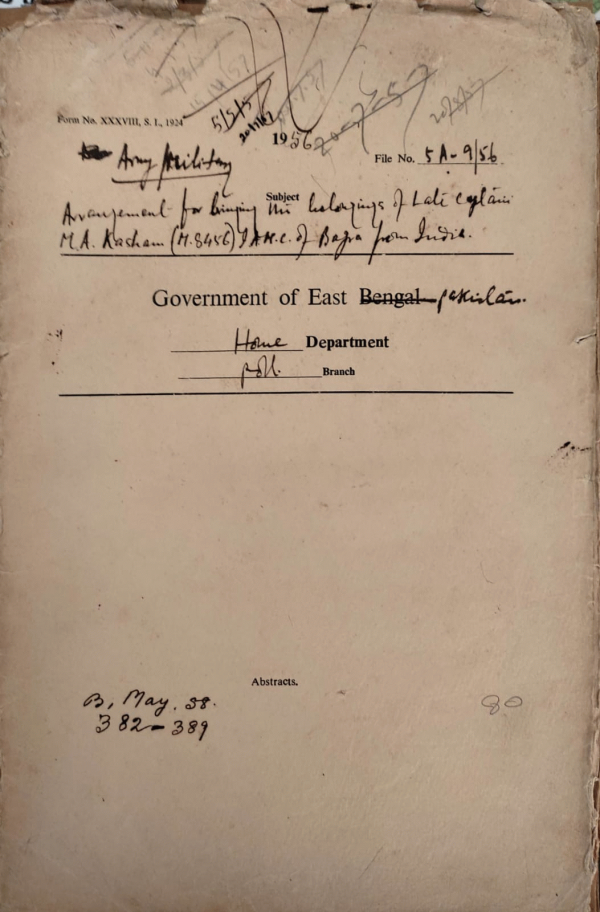 Form No. XXXVIII, S. I., 1924
5/5/5
20-7-57
20/8/57
1956
Army Military
File No. 5A-9/56
Subject
Arrangement for bringing the belongings of Late Captain
M.A. Kasham (M.8456) I.A.M.C. of Bogra from India.
Government of East Bengal Pakistan.
Home Department
Poll. Branch
Abstracts.
B, May. 58.
382-389
80